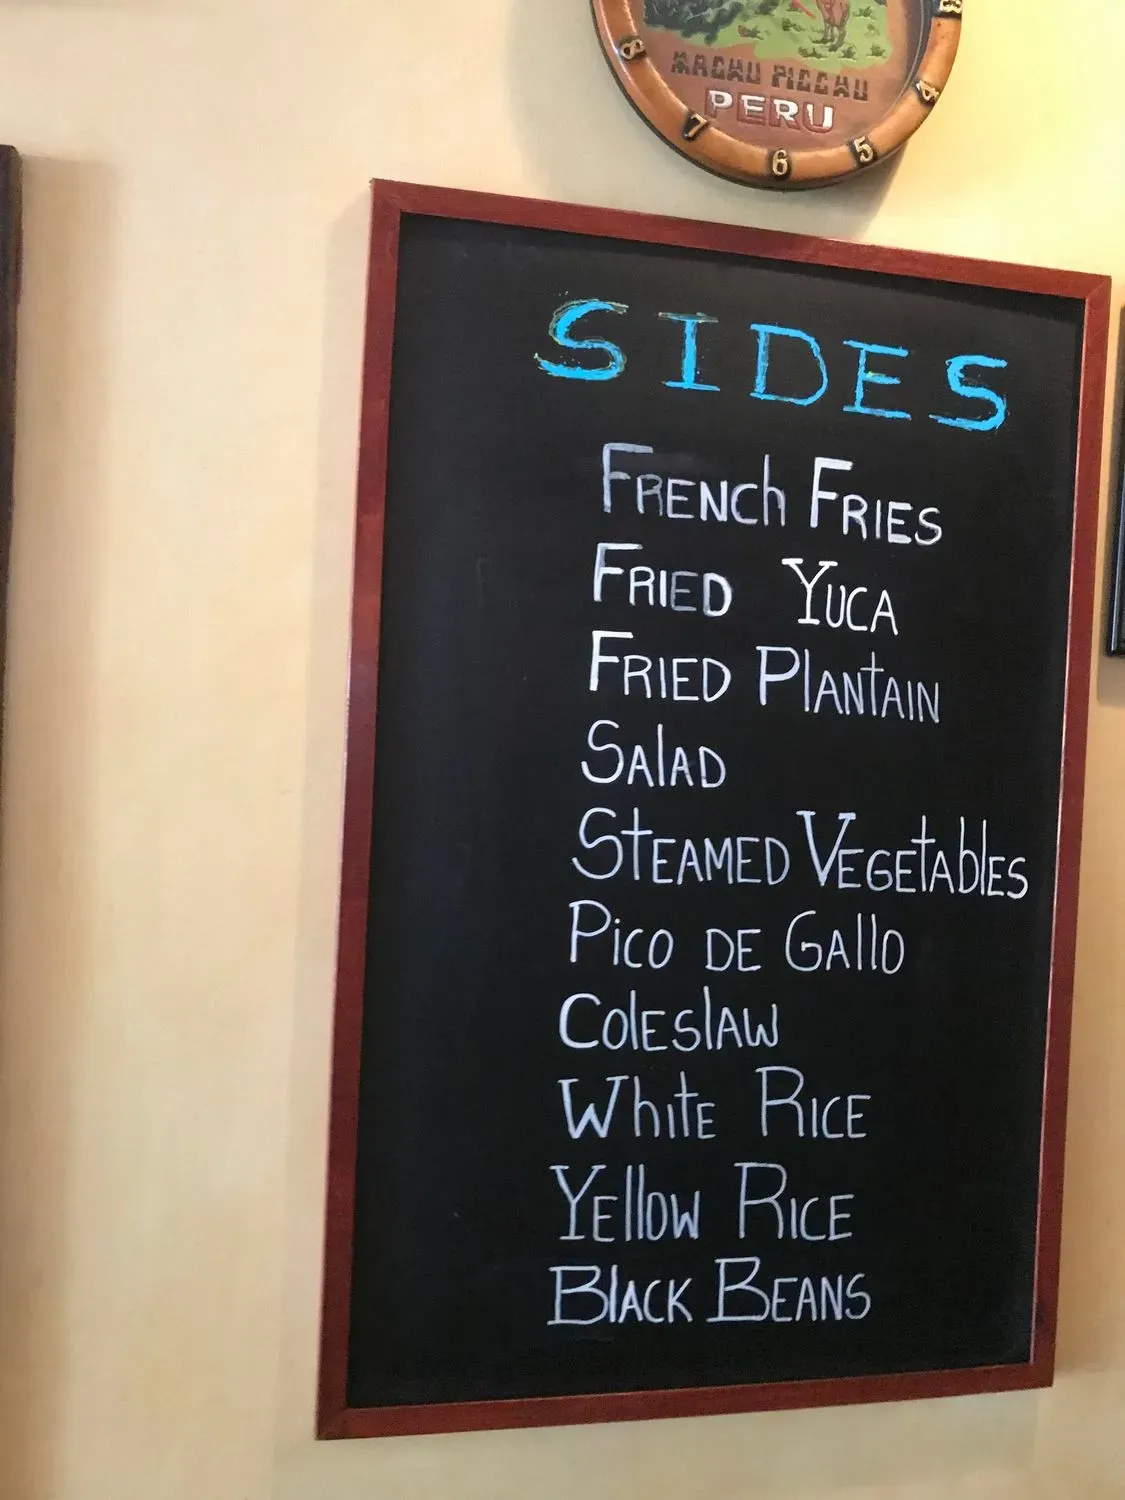 MACHU PICCHU
PERU
8
7
6
5
4
3
SIDES
FRENCh FRIES
FRIED YUCA
FRIED PlANtAIN
SAlAD
StEAMED VEGEtAblES
PiCO DE GAllO
ColEslAW
WhitE RICE
YEllOW RICE
BlACK BEANS